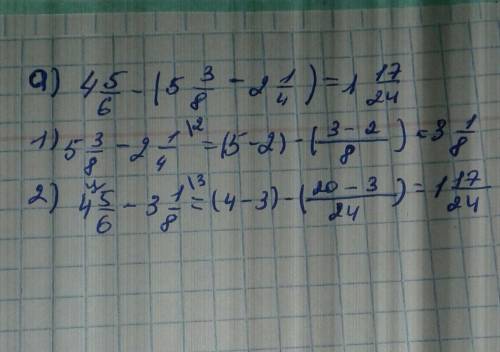 а) 4 5/6 - (5 3/8 - 2 1/4) = 1 17/24
1) 5 3/8 - 2 1/4 \2 = (5-2) - (3-2/8) = 3 1/8
2) 4 5/6 \4 - 3 1/8 \3 = (4-3) - (20-3/24) = 1 17/24